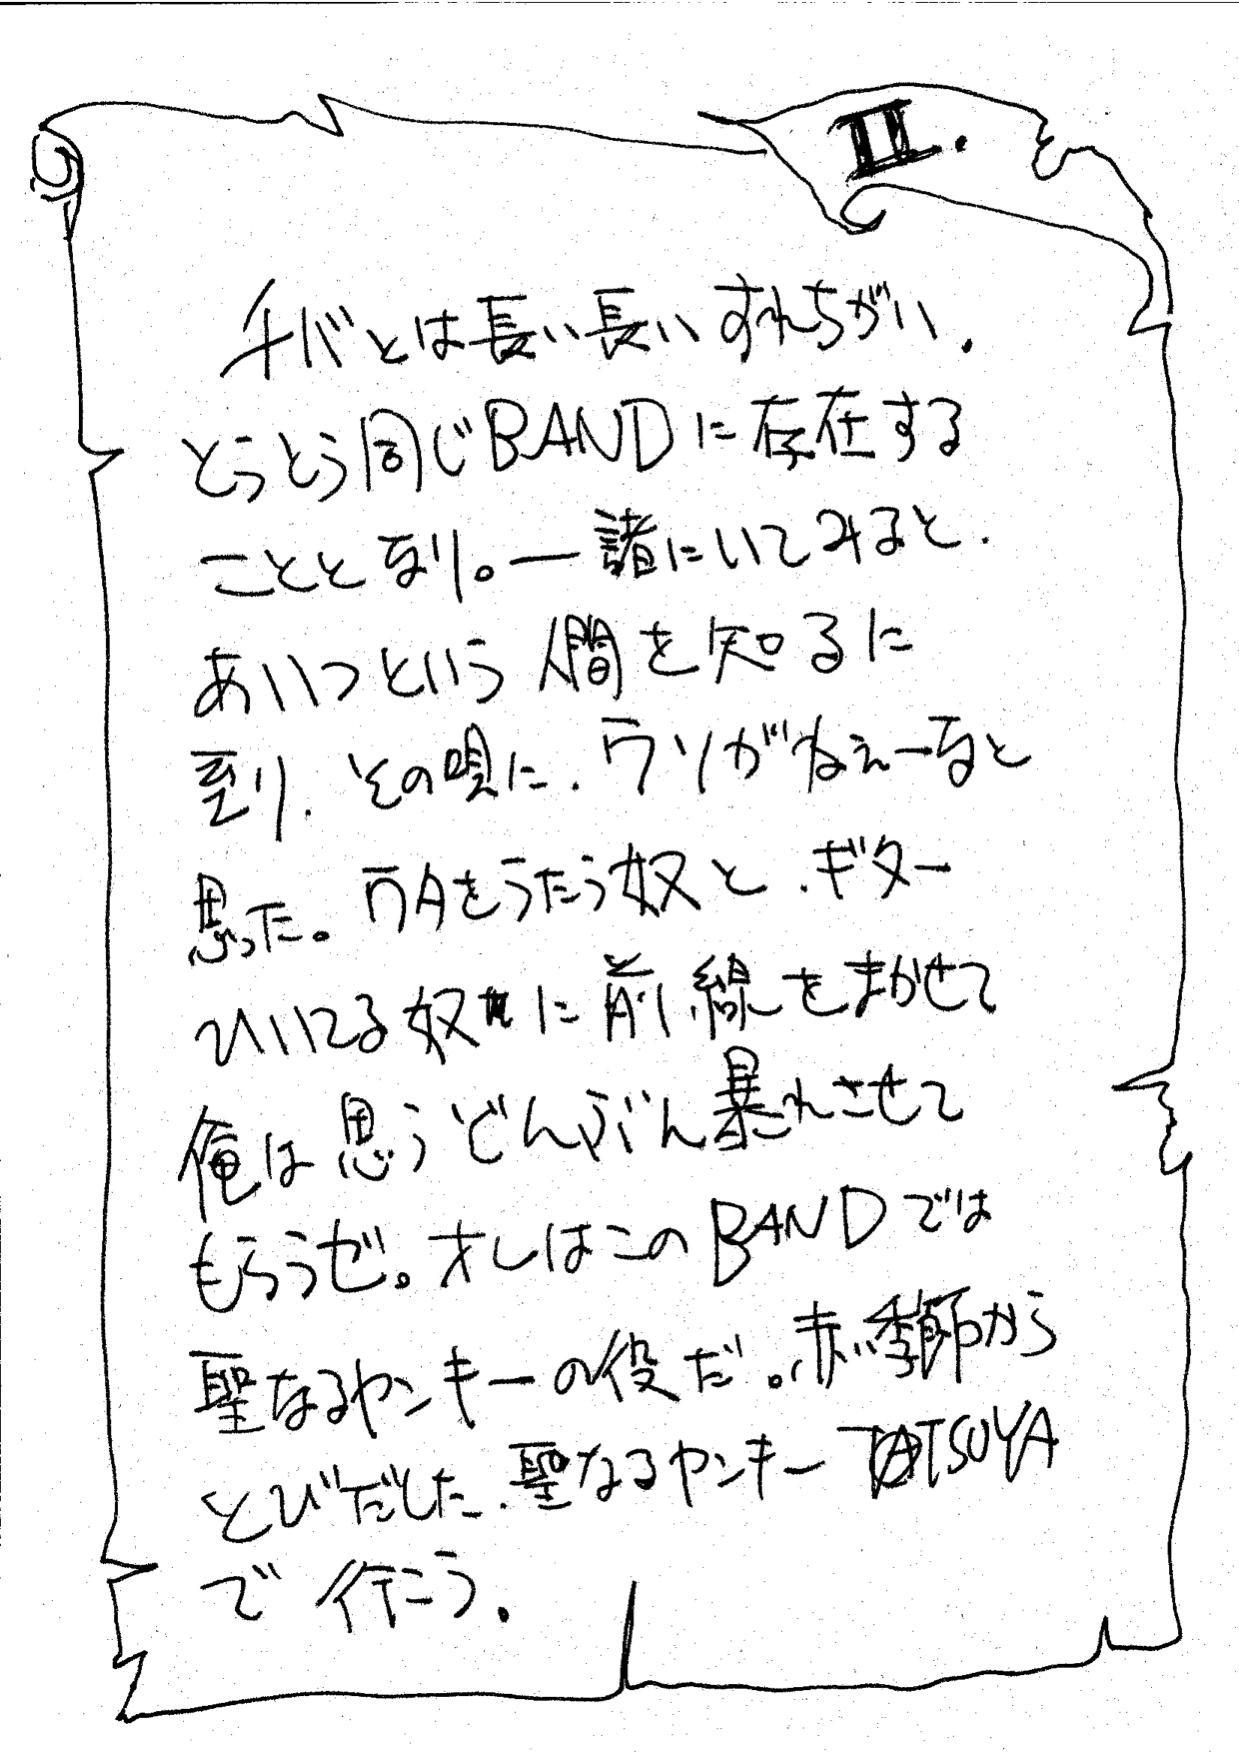 II.
チバとは長い長いすれちがい.
とうとう同じBANDに存在する
ことと なり。一諸にいてみると.
あいつという人間を知るに
到り. その唄に. ウソがねぇーなと
思った。 をうたう奴と. ギター
ひいてる奴に前線をまかせて
俺は思うぞんぶん暴れさせて
もらうぜ。オレはこのBANDでは
聖なるヤンキーの役だ。赤い季節から
とびだした. 聖なるヤンキー TATSUYA
で 行こう.